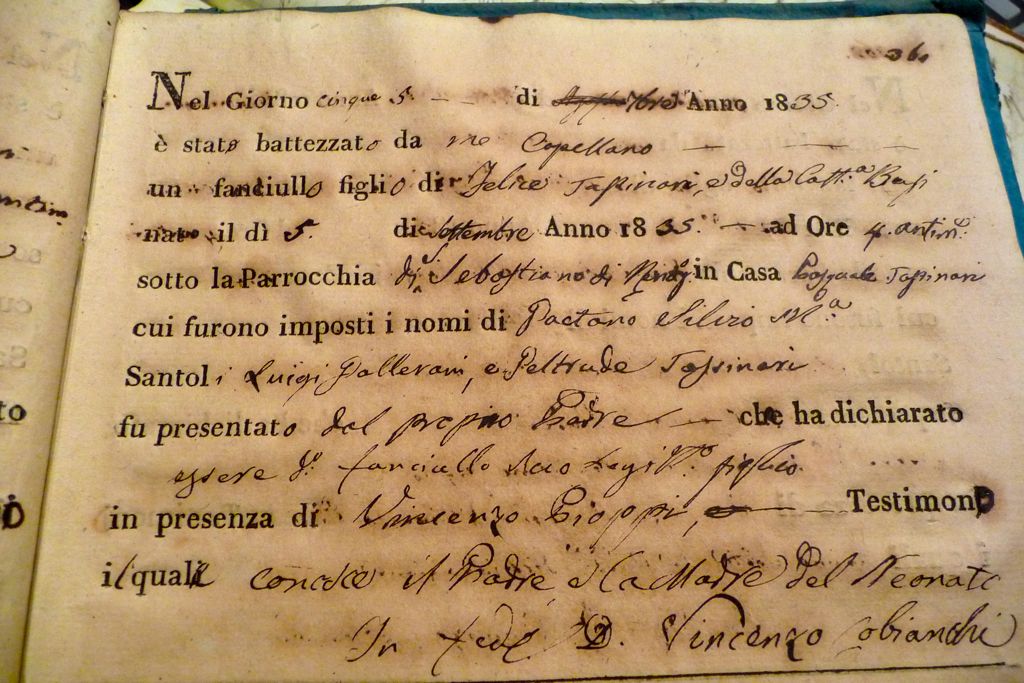 36
Nel Giorno cinque 5. di 7bre Anno 1835.
è stato battezzato da me Capellano
un fanciullo figlio di Felice Tassinari, e della Catt.a Busi
nato il dì 5. di Settembre Anno 1835. ad Ore 4. antim.
sotto la Parrocchia di S. Sebastiano di in Casa Pasquale Tassinari
cui furono imposti i nomi di Gaetano Silvio M.a
Santoli Luigi Pallerani, e Geltrude Tassinari
fu presentato dal proprio Padre che ha dichiarato
essere d.o fanciullo suo legit.mo figlio
in presenza di Vincenzo Pioppi, Testimon
il quale conosce il Padre e la Madre del Neonato
In fede D. Vincenzo Cobianchi